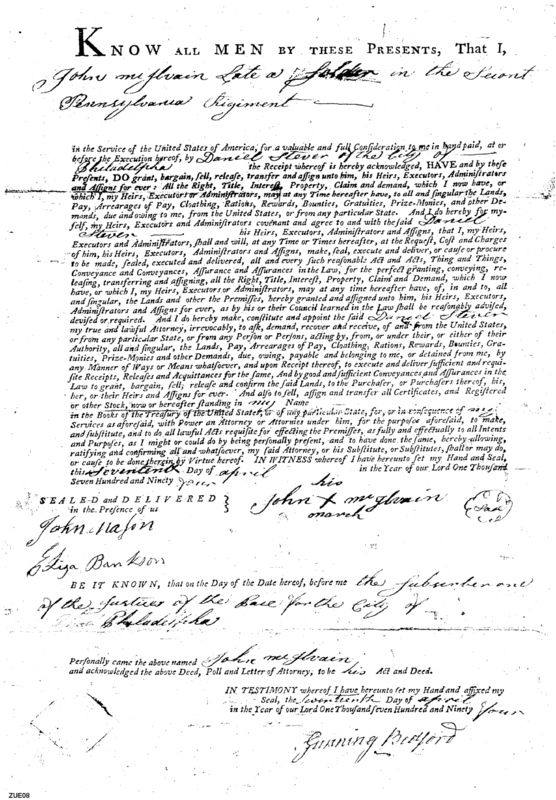 KNOW ALL MEN BY THESE PRESENTS, That I,
John McIlvain Late a Soldier in the Second
Pennsylvania Regiment
in the Service of the United States of America, for a valuable and full Consideration to me in hand paid, at or
before the Execution hereof, by Daniel Stever of the City of
Philadelphia the Receipt whereof is hereby acknowledged, HAVE and by these
Presents, DO grant, bargain, sell, release, transfer and assign unto him, his Heirs, Executors, Administrators
and Assigns for ever: All the Right, Title, Interest, Property, Claim and Demand, which I now have, or
which I, my Heirs, Executors or Administrators, may at any Time hereafter have, to all and singular the Lands,
Pay, Arrearages of Pay, Cloathing, Rations, Rewards, Bounties, Gratuities, Prize-Monies, and other De-
mands, due and owing to me, from the United States, or from any particular State. And I do hereby for my-
self, my Heirs, Executors and Administrators covenant and agree to and with the said Daniel
Stever his Heirs, Executors, Administrators and Assigns, that I, my Heirs,
Executors and Administrators, shall and will, at any Time or Times hereafter, at the Request, Cost and Charges
of him, his Heirs, Executors, Administrators and Assigns, make, seal, execute and deliver, or cause or procure
to be made, sealed, executed and delivered, all and every such reasonable Act and Acts, Thing and Things,
Conveyance and Conveyances, Assurance and Assurances in the Law, for the perfect granting, conveying, re-
leasing, transferring and assigning, all the Right, Title, Interest, Property, Claim and Demand, which I now
have, or which I, my Heirs, Executors or Administrators, may at any time hereafter have, of, in and to, all
and singular, the Lands and other the Premisses, hereby granted and assigned unto him, his Heirs, Executors,
Administrators and Assigns for ever, as by his or their Council learned in the Law shall be reasonably advised,
devised or required. And I do hereby make, constitute and appoint the said Daniel Stever
my true and lawful Attorney, irrevocably, to ask, demand, recover and receive, of and from the United States,
or from any particular State, or from any Person or Persons, acting by, from, or under their, or either of their
Authority, all and singular, the Lands, Pay, Arrearages of Pay, Cloathing, Rations, Rewards, Bounties, Gra-
tuities, Prize-Monies and other Demands, due, owing, payable and belonging to me, or detained from me, by
any Manner of Ways or Means whatsoever, and upon Receipt thereof, to execute and deliver sufficient and requi-
site Receipts, Releases and Acquittances for the same. And by good and sufficient Conveyances and Assurances in the
Law to grant, bargain, sell; release and confirm the said Lands to the Purchaser, or Purchasers thereof, his,
her, or their Heirs and Assigns for ever. And also to sell, assign and transfer all Certificates, and Registered
or other Stock, now or hereafter standing in my Name
in the Books of the Treasury of the United States, or of any particular State, for, or in consequence of my
Services as aforesaid, with Power an Attorney or Attornies under him, for the purpose aforesaid, to make,
and substitute, and to do all lawful Acts requisite for effecting the Premisses, as fully and effectually to all Intents
and Purposes, as I might or could do by being personally present, and to have done the same, hereby allowing,
ratifying and confirming all and whatsoever, my said Attorney, or his Substitute, or Substitutes, shall or may do,
or cause to be done therein by Virtue hereof. IN WITNESS whereof I have hereunto set my Hand and Seal,
this Seventeenth Day of April in the Year of our Lord One Thousand
Seven Hundred and Ninety four
SEALED and DELIVERED
in the Presence of us
his
John X McIlvain
mark
Seal
John Mason
Eliza Bankson
BE IT KNOWN, that on the Day of the Date hereof, before me the Subscriber one
of the Justices of the Pace for the City of
Philadelphia
Personally came the above named John McIlvain
and acknowledged the above Deed, Poll and Letter of Attorney, to be his Act and Deed.
IN TESTIMONY whereof I have hereunto set my Hand and affixed my
Seal, the Seventeenth Day of April
in the Year of our Lord One Thousand seven Hundred and Ninety four
Gunning Bedford
ZUE08